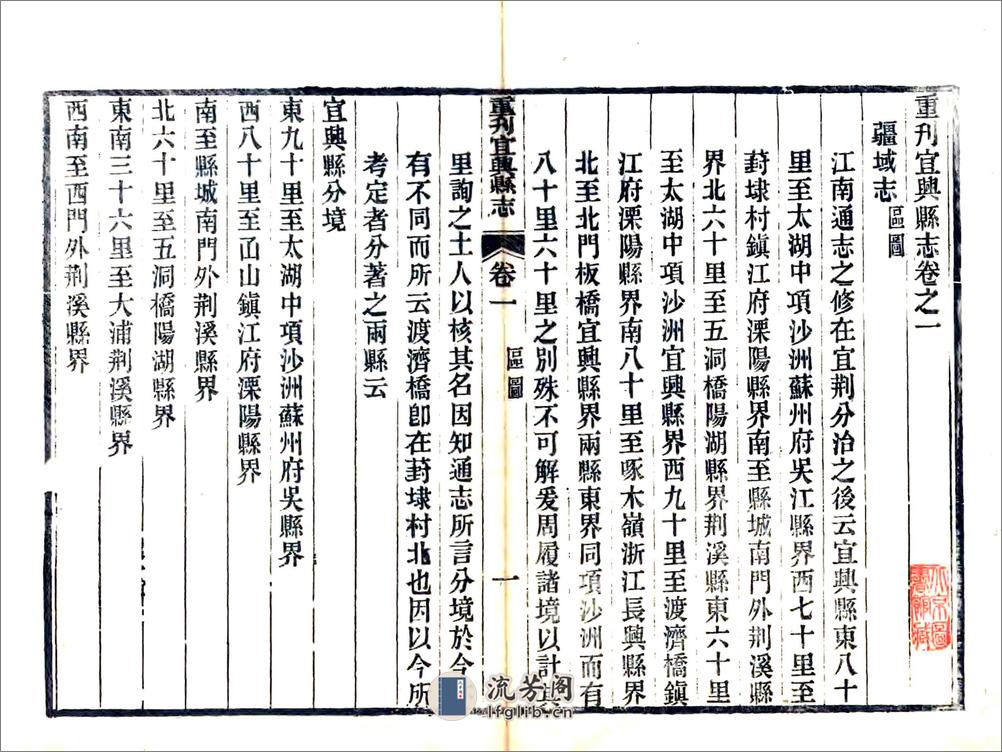 重刋宜興縣志卷之一
疆域志 區圖
江南通志之修在宜荆分治之後云宜興縣東八十
里至太湖中項沙洲蘇州府吴江縣界西七十里至
葑埭村鎮江府溧陽縣界南至縣城南門外荆溪縣
界北六十里至五洞橋陽湖縣界荆溪縣東六十里
至太湖中項沙洲宜興縣界西九十里至渡濟橋鎮
江府溧陽縣界南八十里至啄木嶺浙江長興縣界
北至北門板橋宜興縣界兩縣東界同項沙洲而有
八十里六十里之别殊不可解爰周履諸境以計其
重刋宜興縣志
卷一
區圖
一
里詢之土人以核其名因知通志所言分境於今
有不同而所云渡濟橋卽在葑埭村北也因以今所
考定者分著之兩縣云
宜興縣分境
東九十里至太湖中項沙洲蘇州府吴縣界
西八十里至山鎮江府溧陽縣界
南至縣城南門外荆溪縣界
北六十里至五洞橋陽湖縣界
東南三十六里至大浦荆溪縣界
西南至西門外荆溪縣界
北京圖書館藏
流芳閣
lfglib.cn